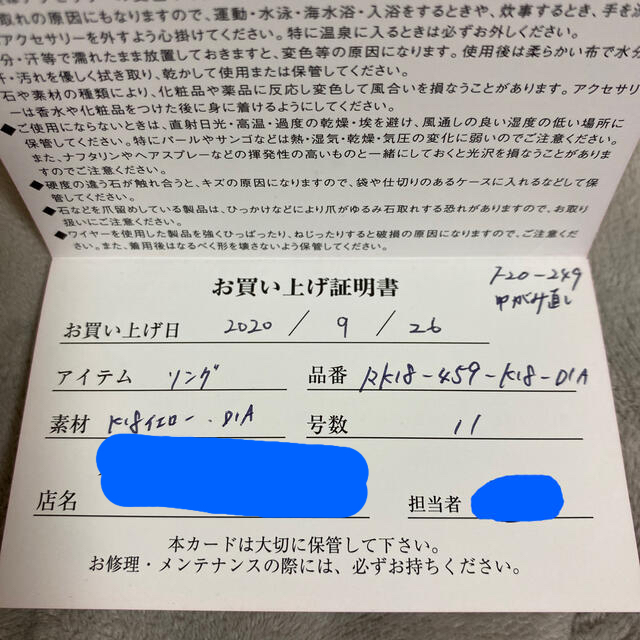 取れの原因にもなりますので、運動・水泳・海水浴・入浴をするときや、炊事するとき、手を
アクセサリーを外すよう心掛けてください。特に温泉に入るときは必ずお外しください。
分・汗等で濡れたまま放置しておきますと、変色等の原因になります。使用後は柔らかい布で水分
汗・汚れを優しく拭き取り、乾かして使用または保管してください。
石や素材の種類により、化粧品や薬品に反応し変色して風合いを損なうことがあります。アクセサリ
ーは香水や化粧品をつけた後に身に着けるようにしてください。
◆ご使用にならないときは、直射日光・高温・過度の乾燥・埃を避け、風通しの良い湿度の低い場所に
保管してください。特にパールやサンゴなどは熱・湿気・乾燥・気圧の変化に弱いのでご注意ください。
また、ナフタリンやヘアスプレーなどの揮発性の高いものと一緒にしておくと光沢を損なうことがありま
すのでご注意ください。
◆硬度の違う石が触れ合うと、キズの原因になりますので、袋や仕切りのあるケースに入れるなどして保
管してください。
◆石などを爪留めしている製品は、ひっかけなどにより爪がゆるみ石取れする恐れがありますので、お取り
扱いにご注意ください。
◆ワイヤーを使用した製品を強くひっぱったり、ねじったりすると破損の原因になりますので、ご注意くだ
さい。また、着用後はなるべく形を壊さないよう保管してください。
お買い上げ証明書
F20-249
ゆがみ直し
お買い上げ日 2020 / 9 / 26
アイテム リング 品番 RK18-459-K18-DIA
素材 K18イエロー.DIA 号数 11
店名 担当者
本カードは大切に保管して下さい。
お修理・メンテナンスの際には、必ずお持ちください。